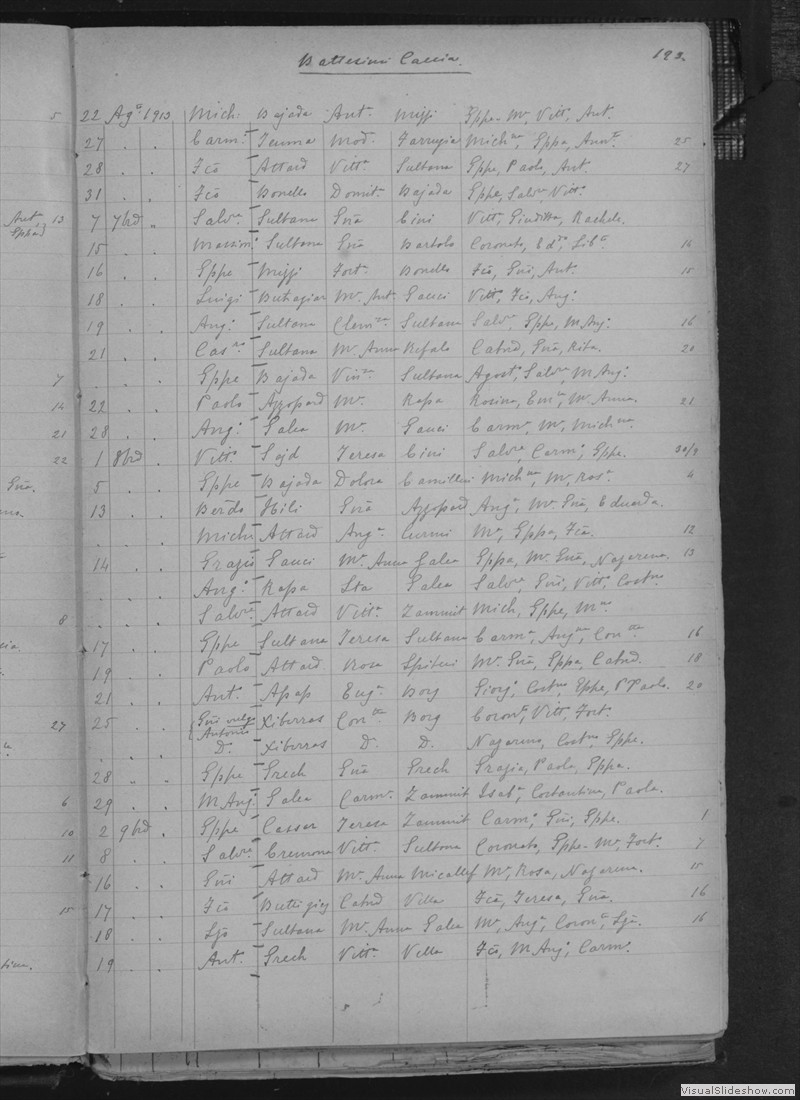 Battesimi Caccia.
193.
5 22 Agº 1913 Mich. Bajada Ant. Mizzi Gppe-Mª, Vittª, Ant.
27 . . Carmº Mod. Farrugia Michna, Gppa, 25
28 . . Fcõ Attard Vittª Sultana Gppe, Paolo, Ant. 27
31 . . Fcõ Bonello Bajada Gppe, Salvª, Vittº
Antª Gppa} 13 7 7bre „ Salvª Sultana Gnã Cini Vittº, Giuditta, Rachele.
15 . . Sultana Gnã Bartolo Coronato, Libª. 16
16 . . Gppe Mizzi Fortª Bonello Fcõ, Gnĩ, Ant. 15
18 . . Luigi Buttigieg Mª Ant. Gauci Vittº, Fcõ, Angº
19 . . Angº Sultana Clemza Sultana Salvª, Gppe, M Angº 16
21 . . Casro Sultana Mª Anna Refalo Catnd, Gnã, Rita. 20
7 . . . Gppe Bajada Sultana Agostº, Salvª, M Angº
14 22 . . Paolo Azzopard Mª Rapa Rosina, Emª, Mª Anna. 21
21 28 . . Angº Galea Mª Gauci Carmª, Mª, Michna
22 1 8bre . Vittº Sajd Teresa Cini Salvª, Carmº, Gppe. 30/9
Gnã. 5 . . Gppe Bajada Dolora Camilleri Michna, Mª, Rosª 4
13 . . Berdo Hili Gnã Azzopard Angª, Mª Gnã, Eduarda.
. . . Attard Angª Curmi Mª, Gppa, Fcã. 12
14 . . Grazio Gauci Mª Anna Galea Gppa, Mª Gnã, Nazarena. 13
. . . Angº Rapa Galea Salvª, Gnĩ, Vittº, Costno
8 . . . Salvª Attard Vittª Zammit Mich, Gppe, Mª
17 . . Gppe Sultana Teresa Sultana Carmª, Angna, Contta 16
19 . . Paolo Attard Rosa Spiteri Mª Gnã, Gppa, Catnd. 18
21 . . Ant. Apap Eugª Borg Giorgº, Costno, Gppe, P Paolo. 20
27 25 . . {Gnĩ vulgo Antonio Xiberras Contta Borg Coronº, Vittº, Fortº
. . . D. Xiberras D. D. Nazareno, Costno, Gppe.
28 . . Gppe Grech Gnã Grech Grazia, Paola, Gppa.
6 29 . . M Angº Galea Carmª Zammit Isabª, Costantina, Paola.
10 2 9bre . Gppe Cassar Teresa Zammit Carmº, Gnĩ, Gppe. 1
11 8 . . Salvª Cremona Vittª Sultana Coronato, Gppe-Mª, Fortº 7
16 . . Gnĩ Attard Mª Anna Micallef Mª, Rosa, Nazarena. 15
15 17 . . Fcõ Buttigieg Catnd Vella Fcã, Teresa, Gnã. 16
18 . . Sultana Mª Anna Galea Mª, Angº, Coronº, 16
19 . . Ant. Grech Vittª Vella Fcõ, M Angº, Carmº
VisualSlideshow.com